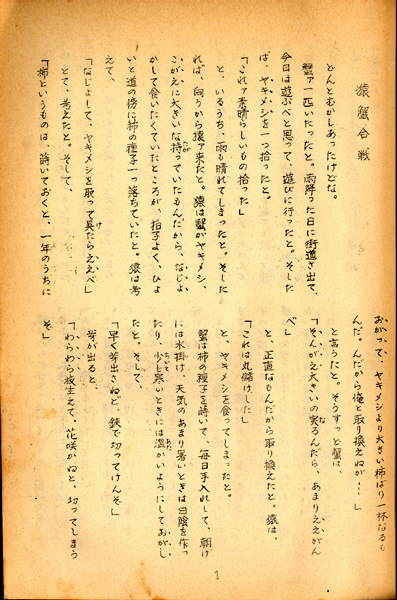 猿蟹合戦
どんとむかしあったけどな。
蟹ァ一匹いたったと。雨降った日に街道さ出て、
今日は遊ぶべと思って、遊びに行ったと。そした
ば、ヤキメシを一つ拾ったと。
「これァ素晴らしいもの拾った」
と、いるうち、雨も晴れてしまったと。そした
れば、向うから猿ァ来たと。猿は蟹がヤキメシ、
こがえに大きいな持っていたもんだから、なじょ
かして食いたくていたところが、拍子よく、ひょ
いと道の傍に柿の種子一つ落ちていたと。猿は考
えて、
「なじょして、ヤキメシを取って呉たらええべ」
とて、考えたと。そして、
「柿というものは、蒔いておくと、一年のうちに
おがって、ヤキメシより大さい柿ばり一杯なるも
んだ。んだから俺と取り換えねが…」
と言うたと。そうすっど蟹は、
「そんがえ大きいの実るんだら、あまりええがん
べ」
と、正直なもんだから取り換えたと。猿は、
「これは丸儲けした」
と、ヤキメシを食ってしまったと。
蟹は柿の種子を蒔いて、毎日手入れして、朝げ
には水掛け、天気のあまり暑いときは日陰を作っ
たり、少し寒いときには温かいようにしておがし
たと。そして、
「早く芽出さねど、鋏で切ってけんぞ」
芽が出ると、
「わらわら枝生えて、花咲かねと、切ってしまう
ぞ」
1